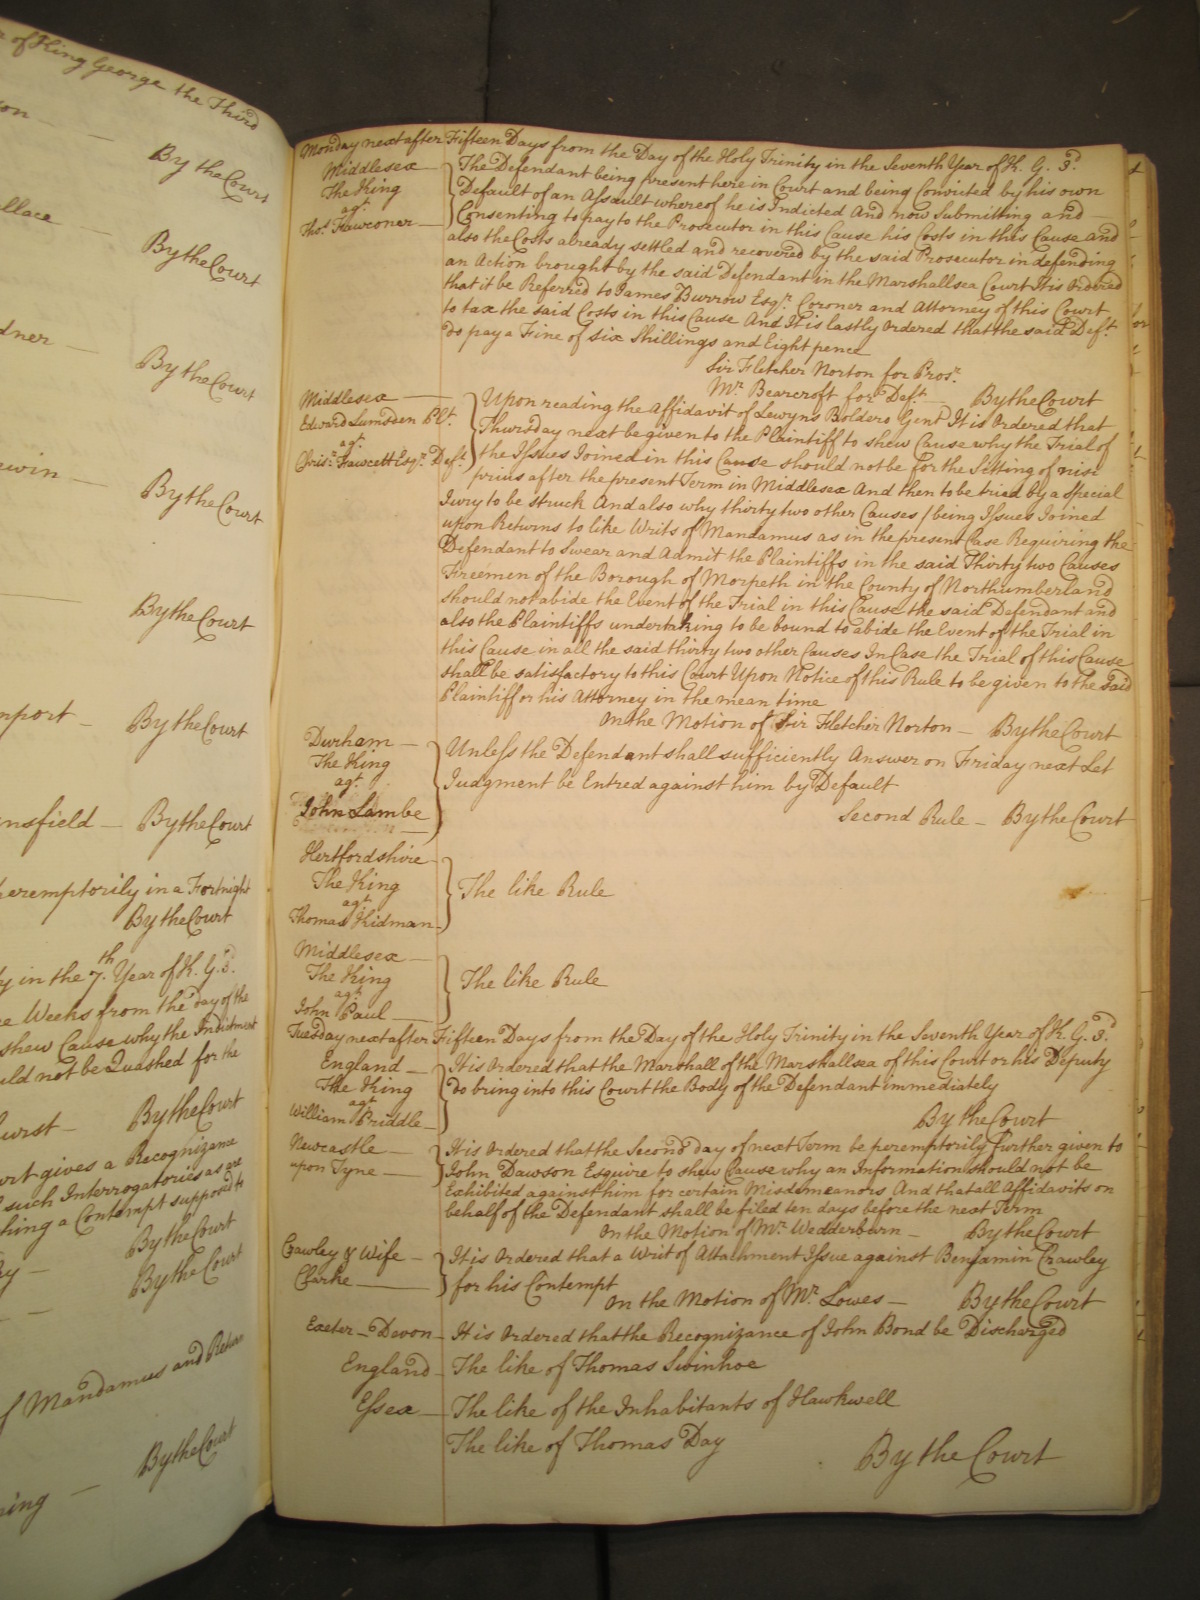 of King George the Third
By the Court
By the Court
By the Court
By the Court
By the Court
By the Court
nsfield — By the Court
peremptorily in a Fortnight
By the Court
in the 7th. Year of K. G. 3.
Weeks from the day of the
shew Cause why the Indictment
uld not be Quashed for the
By the Court
gives a Recognizance
such Interrogatories as are
thing a Contempt supposed to
By the Court
By the Court
of Mandamus and Return
By the Court
Monday next after Fifteen Days from the Day of the Holy Trinity in the Seventh Year of K. G. 3d.
Middlesex —
The King
agt.
Thos. Fawconer —
The Defendant being present here in Court and being Convicted by his own
Default of an Assault whereof he is Indicted And now Submitting and —
Consenting to pay to the Prosecutor in this Cause his Costs in this Cause and
also the Costs already settled and recovered by the said Prosecutor in defending
an Action brought by the said Defendant in the Marshallsea Court It is Ordered
that it be Referred to James Burrow Esqr. Coroner and Attorney of this Court
to tax the said Costs in this Cause And It is lastly Ordered that the said Deft.
do pay a Fine of six Shillings and Eight pence
Sir Fletcher Norton for Prosr.
Mr. Bearcroft for Deft. — By the Court
Middlesex —
Edward Lumsden Plt.
agt.
Chrisr. Fawcett Esqr. Deft.
Upon reading the Affidavit of Lewyns Boldero Gent It is Ordered that
Thursday next be given to the Plaintiff to shew Cause why the Trial of
the Issues Joined in this Cause should not be for the Sitting of nisi
prius after the present Term in Middlesex And then to be tried by a Special
Jury to be struck And also why thirty two other Causes / being Issues Joined
upon Returns to like Writs of Mandamus as in the present Case Requiring the
Defendant to Swear and Admit the Plaintiffs in the said Thirty two Causes
Freemen of the Borough of Morpeth in the County of Northumberland
should not abide the Event of the Trial in this Cause the said Defendant and
also the Plaintiffs undertaking to be bound to abide the Event of the Trial in
this Cause in all the said thirty two other Causes In Case the Trial of this Cause
shall be satisfactory to this Court Upon Notice of this Rule to be given to the said
Plaintiff or his Attorney in the mean time
On the Motion of Sir Fletcher Norton — By the Court
Durham —
The King
agt.
John Lambe
Unless the Defendant shall sufficiently Answer on Friday next Let
Judgment be Entred against him by Default
Second Rule — By the Court
Hertfordshire —
The King
agt.
Thomas Kidman —
The like Rule
Middlesex —
The King
agt.
John Paul —
The like Rule
Tuesday next after Fifteen Days from the Day of the Holy Trinity in the Seventh Year of K. G. 3d.
England —
The King
agt.
William Priddle —
It is Ordered that the Marshall of the Marshallsea of this Court or his Deputy
do bring into this Court the Body of the Defendant immediately
By the Court
Newcastle —
upon Tyne —
It is Ordered that the Second day of next Term be peremptorily further given to
John Dawson Esquire to shew Cause why an Information should not be
Exhibited against him for certain Misdemeanors And that all Affidavits on
behalf of the Defendant shall be filed ten days before the next Term
On the Motion of Mr. Wedderburn — By the Court
Crawley & Wife —
Clarke —
It is Ordered that a Writ of Attachment Issue against Benjamin Crawley
for his Contempt
On the Motion of Mr. Lowes — By the Court
Exeter — Devon — It is Ordered that the Recognizance of John Bond be Discharged
England — The like of Thomas Swinhoe
Essex — The like of the Inhabitants of Hawkwell
The like of Thomas Day
By the Court